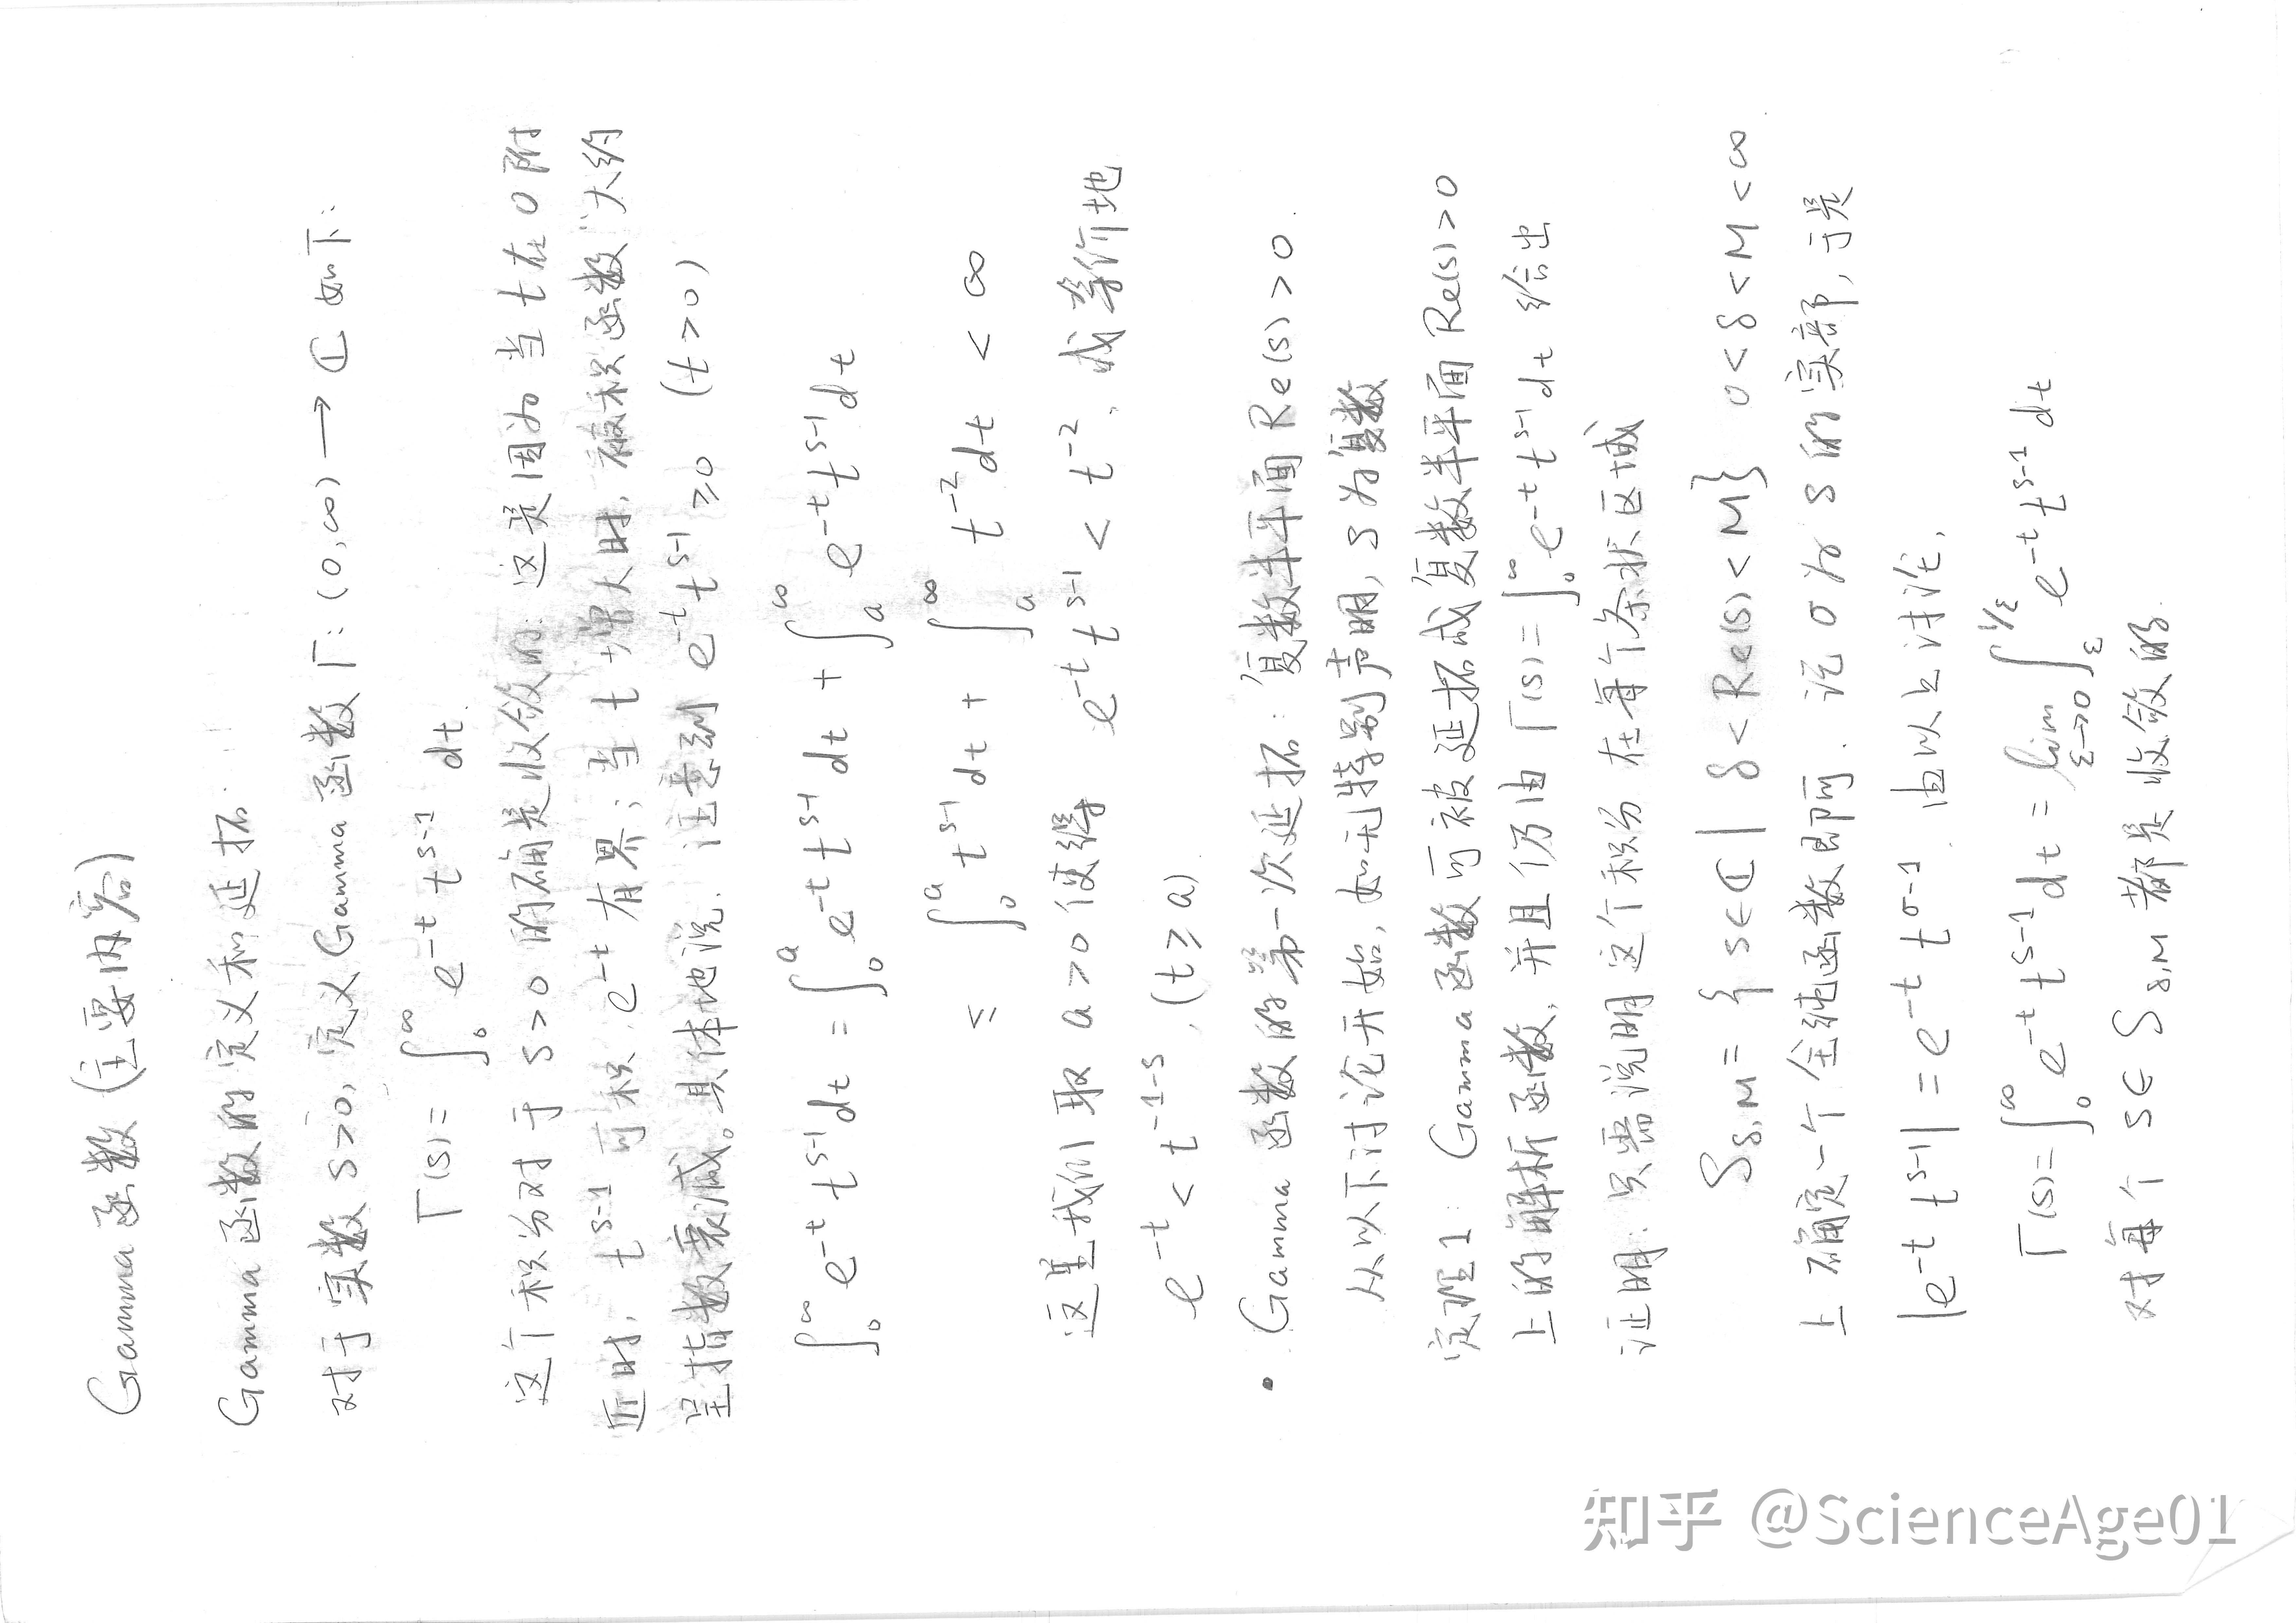 Gamma 函数 (主要内容)
Gamma 函数的定义和延拓.
对于实数 s>0, 定义 Gamma 函数 Γ: (0,∞) → ℂ 如下:
Γ(s) = ∫₀^∞ e^{-t} t^{s-1} dt.
这个积分对于 s>0 的确是收敛的: 这是因为当 t 在 0 附
近时, t^{s-1} 可积, e^{-t} 有界; 当 t 增大时, 被积函数大约
呈指数衰减。具体地说, 注意到 e^{-t} t^{s-1} ≥ 0 (t>0)
∫₀^∞ e^{-t} t^{s-1} dt = ∫₀^a e^{-t} t^{s-1} dt + ∫_a^∞ e^{-t} t^{s-1} dt
≤ ∫₀^a t^{s-1} dt + ∫_a^∞ t^{-2} dt < ∞
这里我们取 a>0 使得 e^{-t} t^{s-1} < t^{-2}, 或等价地
e^{-t} < t^{-1-s}, (t ≥ a)
• Gamma 函数的第一次延拓: 复数半平面 Re(s) > 0.
从以下讨论开始, 如无特别声明, s 为复数
定理 1: Gamma 函数可被延拓成复数半平面 Re(s)>0
上的解析函数, 并且仍由 Γ(s) = ∫₀^∞ e^{-t} t^{s-1} dt 给出
证明: 只需说明这个积分在每个条状区域
S_{δ,M} = { s∈ℂ | δ < Re(s) < M } 0<δ<M<∞
上确定一个全纯函数即可. 记 σ 为 s 的实部, 于是
|e^{-t} t^{s-1}| = e^{-t} t^{σ-1}. 由以上讨论,
Γ(s) = ∫₀^∞ e^{-t} t^{s-1} dt = lim_{ε→0} ∫_ε^{1/ε} e^{-t} t^{s-1} dt
对每个 s∈ S_{δ,M} 都是收敛的.
知乎 @ScienceAge01